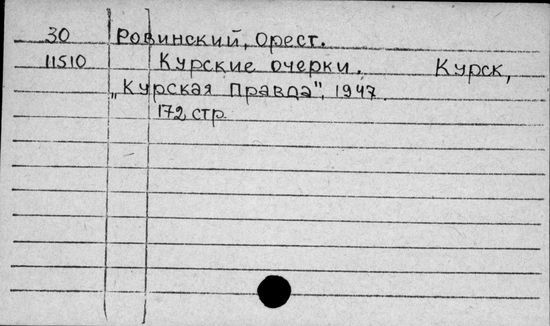 30 Ровинский, Орест.
11510 Курские очерки. Курск,
„Курская Правда", 1947.
172 стр.